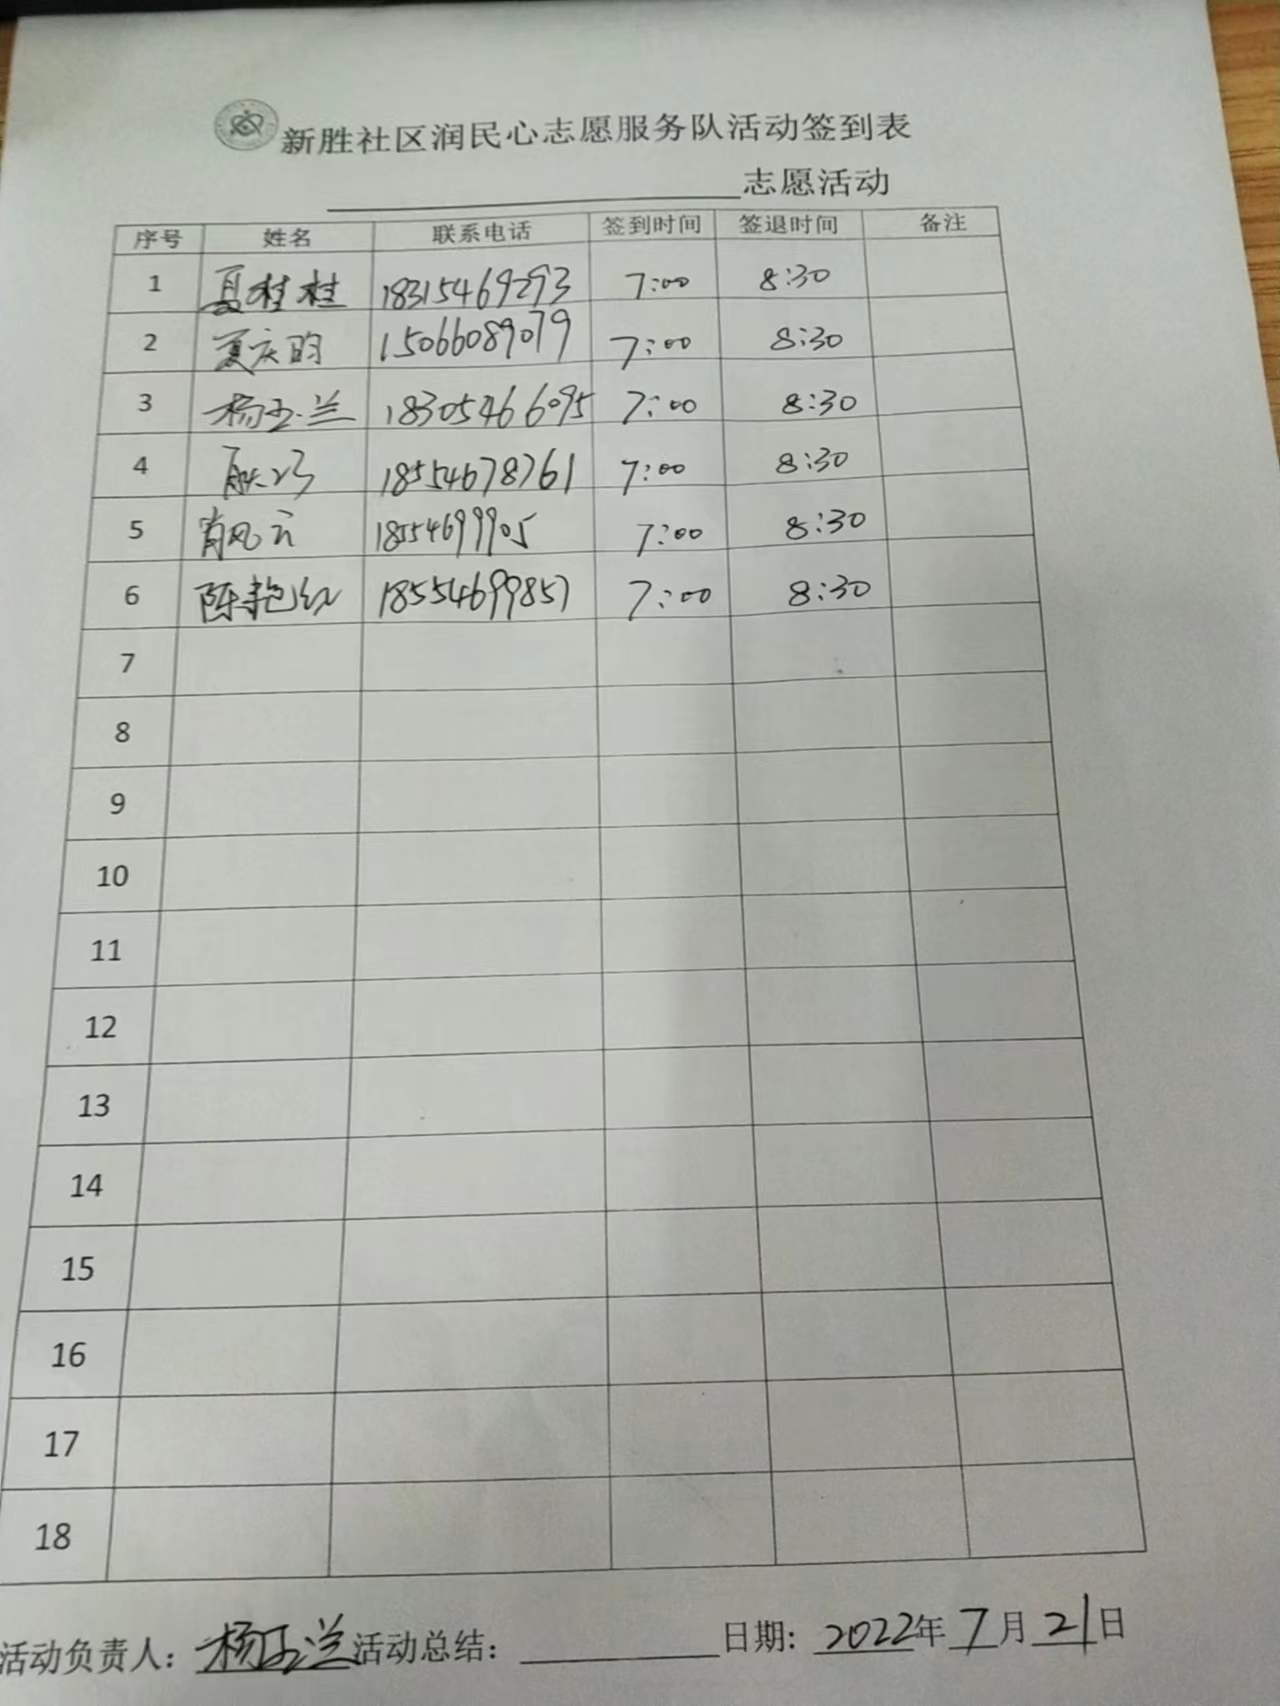 新胜社区润民心志愿服务队活动签到表
志愿活动
序号 姓名 联系电话 签到时间 签退时间 备注
1 夏桂桂 18315469293 7:00 8:30
2 夏庆昀 15066089079 7:00 8:30
3 杨玉兰 18305466095 7:00 8:30
4 18554678761 7:00 8:30
5 肖风云 18554699905 7:00 8:30
6 陈艳红 18554699857 7:00 8:30
7
8
9
10
11
12
13
14
15
16
17
18
活动负责人: 杨玉兰 活动总结: 日期: 2022年7月21日